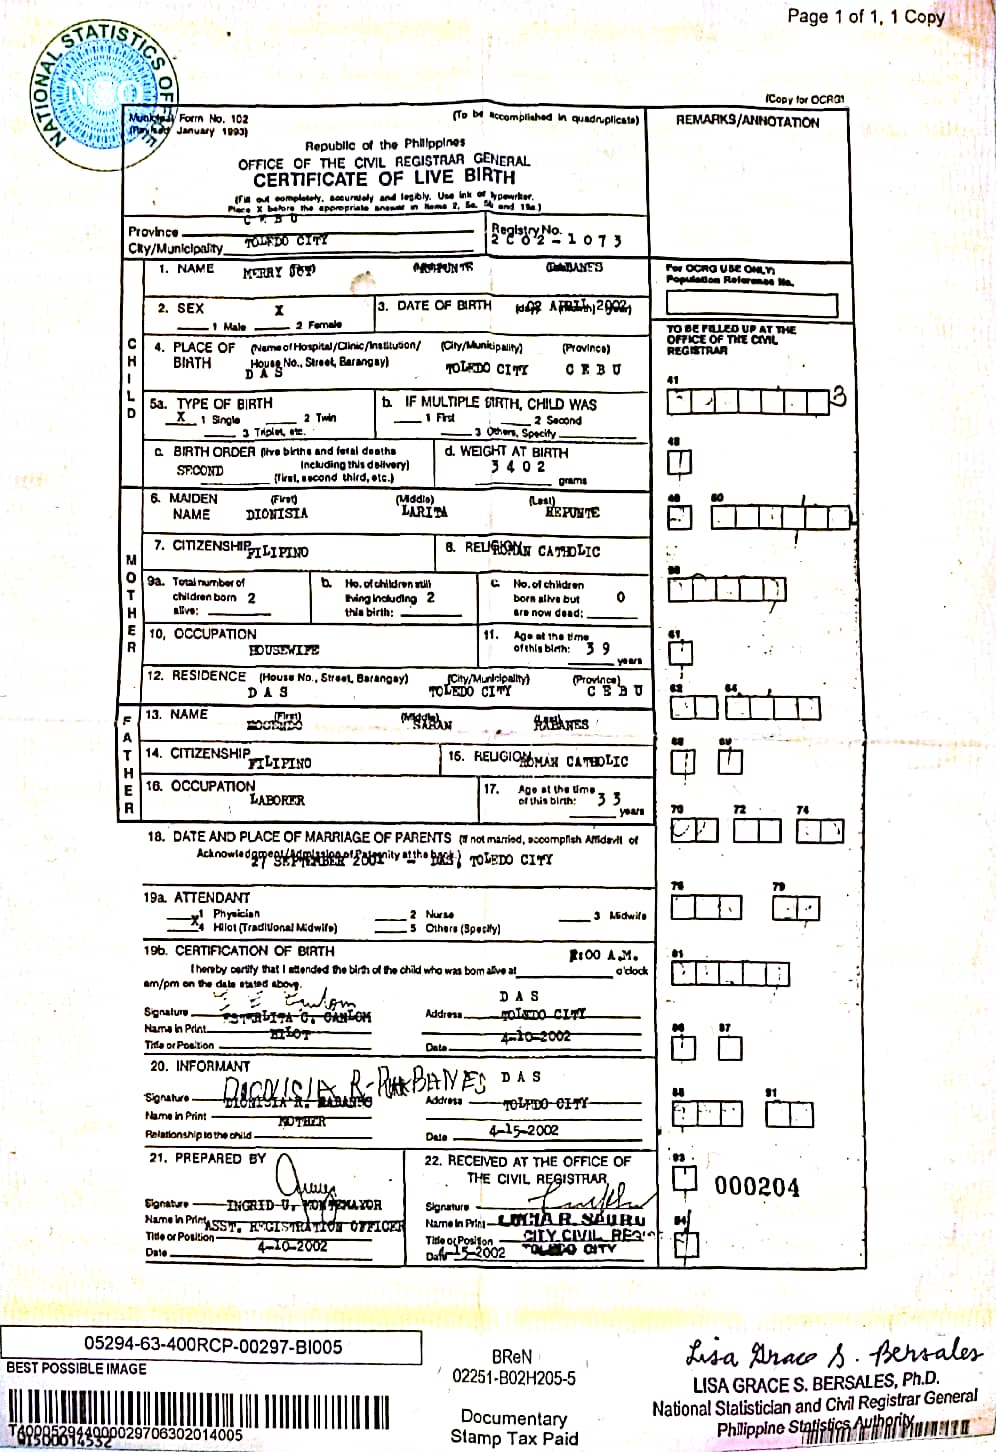 Page 1 of 1, 1 Copy
NATIONAL STATISTICS OFFICE
NSO
(Copy for OCRG)
Municipal Form No. 102
(Revised January 1993)
(To be accomplished in quadruplicate)
REMARKS/ANNOTATION
Republic of the Philippines
OFFICE OF THE CIVIL REGISTRAR GENERAL
CERTIFICATE OF LIVE BIRTH
(Fill out completely, accurately and legibly. Use ink or typewriter.
Place X before the appropriate answer in Items 2, 5a, 5b and 19a.)
Province CEBU
City/Municipality TOLEDO CITY
Registry No.
2002-1073
1. NAME MERRY JOY REPUNTE RABANES
For OCRG USE ONLY:
Population Reference No.
2. SEX X
1 Male 2 Female
3. DATE OF BIRTH (day) (month) (year) APRIL 2002
TO BE FILLED UP AT THE
OFFICE OF THE CIVIL
REGISTRAR
CHILD
4. PLACE OF BIRTH (Name of Hospital/Clinic/Institution/ House No., Street, Barangay) (City/Municipality) (Province)
DAS TOLEDO CITY CEBU
41
3
5a. TYPE OF BIRTH
X 1 Single 2 Twin
3 Triplet, etc.
b. IF MULTIPLE BIRTH, CHILD WAS
1 First 2 Second
3 Others, Specify
c. BIRTH ORDER (live births and fetal deaths
including this delivery)
SECOND (first, second third, etc.)
d. WEIGHT AT BIRTH
3402
grams
48
MOTHER
6. MAIDEN NAME (First) (Middle) (Last)
DIONISIA LARITA REPUNTE
49 50
7. CITIZENSHIP FILIPINO
8. RELIGION ROMAN CATHOLIC
9a. Total number of
children born 2
alive:
b. No. of children still
living including 2
this birth:
c. No. of children
born alive but 0
are now dead:
10, OCCUPATION
HOUSEWIFE
11. Age at the time
of this birth: 39
years
61
12. RESIDENCE (House No., Street, Barangay) (City/Municipality) (Province)
DAS TOLEDO CITY CEBU
62 64
FATHER
13. NAME (First) (Middle) (Last)
SABAN RABANES
14. CITIZENSHIP FILIPINO
15. RELIGION ROMAN CATHOLIC
68 69
16. OCCUPATION
LABORER
17. Age at the time
of this birth: 33
years
70 72 74
18. DATE AND PLACE OF MARRIAGE OF PARENTS (If not married, accomplish Affidavit of
Acknowledgment/Admission of Paternity at the back)
27 SEPTEMBER 2001 DAS, TOLEDO CITY
76 79
19a. ATTENDANT
1 Physician 2 Nurse 3 Midwife
X 4 Hilot (Traditional Midwife) 5 Others (Specify)
19b. CERTIFICATION OF BIRTH
I hereby certify that I attended the birth of the child who was born alive at :00 A.M. o'clock
am/pm on the date stated above.
81
Signature
Name in Print ESTERLITA C. CANLOM
Title or Position HILOT
Address DAS
TOLEDO CITY
Date 4-10-2002
86 87
20. INFORMANT
Signature DIONISIA R. RABANES
Name in Print DIONISIA R. RABANES
Relationship to the child MOTHER
Address DAS
TOLEDO CITY
Date 4-15-2002
88 91
21. PREPARED BY
Signature
Name in Print INGRID U. MONTEMAYOR
Title or Position ASST. REGISTRATION OFFICER
Date 4-10-2002
22. RECEIVED AT THE OFFICE OF
THE CIVIL REGISTRAR
Signature
Name in Print
Title or Position CITY CIVIL REGI
TOLEDO CITY
Date 4-15-2002
93
000204
94
05294-63-400RCP-00297-BI005
BEST POSSIBLE IMAGE
T400052944000029706302014005
01500014532
BReN
02251-B02H205-5
Documentary
Stamp Tax Paid
Lisa Grace S. Bersales
LISA GRACE S. BERSALES, Ph.D.
National Statistician and Civil Registrar General
Philippine Statistics Authority